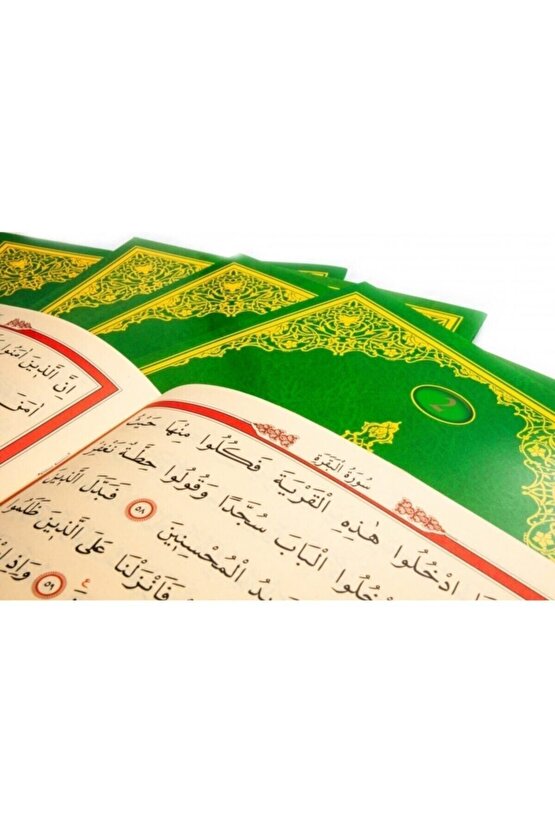 سُورَةُ الْبَقَرَةِ
ادْخُلُوا هٰذِهِ الْقَرْيَةَ فَكُلُوا مِنْهَا حَيْثُ
ادْخُلُوا الْبَابَ سُجَّدًا وَقُولُوا حِطَّةٌ نَغْفِرْ
الْمُحْسِنِينَ ٥٨ فَبَدَّلَ الَّذِينَ
فَاَنْزَلْنَا عَلَى الَّذِينَ ظَلَمُوا
٥٩ وَاِذِ
اِنَّ الَّذِينَ اٰمَنُوا
2